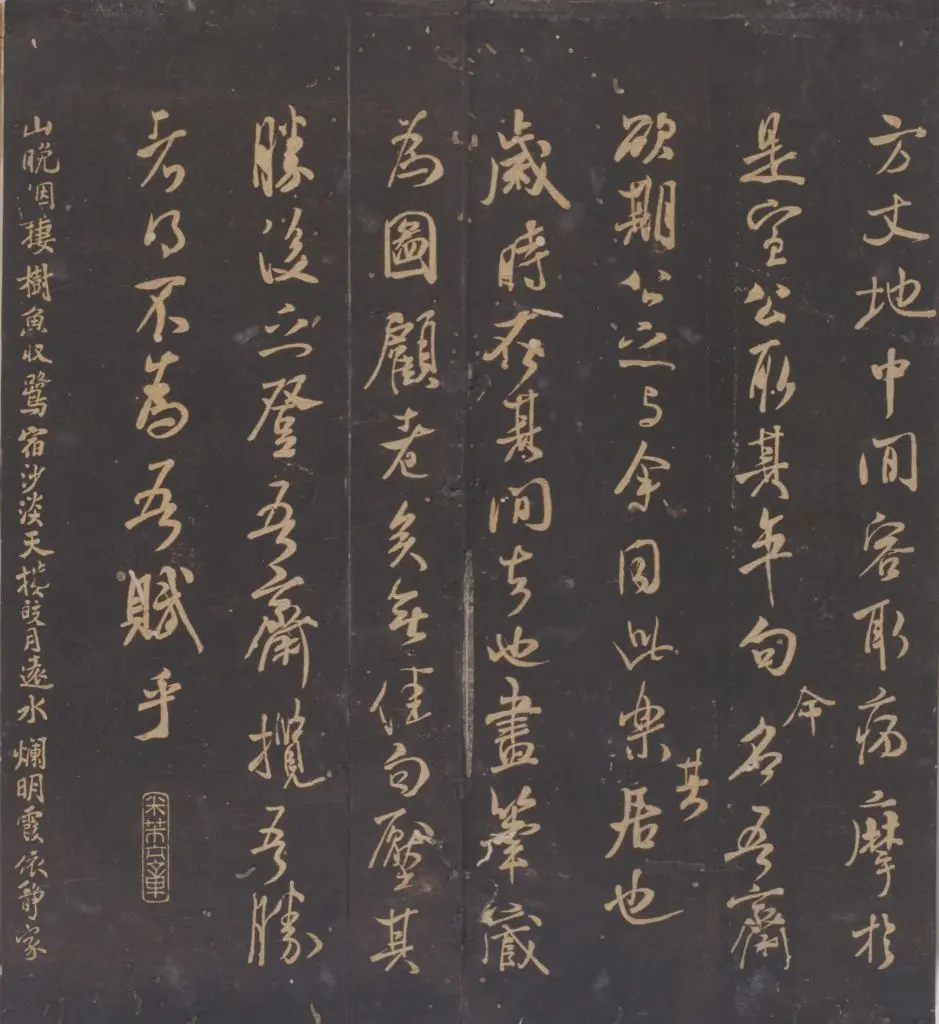 方丈地中間容取病摩於
是宣公取其句今名吾齋
欲期公之与余同此樂其居也
歲時在其間去也畫筆藏
為圖顧老矣無佳句壓其
勝後之登吾齋攬吾勝
者得不為吾賦乎
米芾元章
山晚烟棲樹魚收鷺宿沙淡天橫皎月遠水爛明霞依靜家